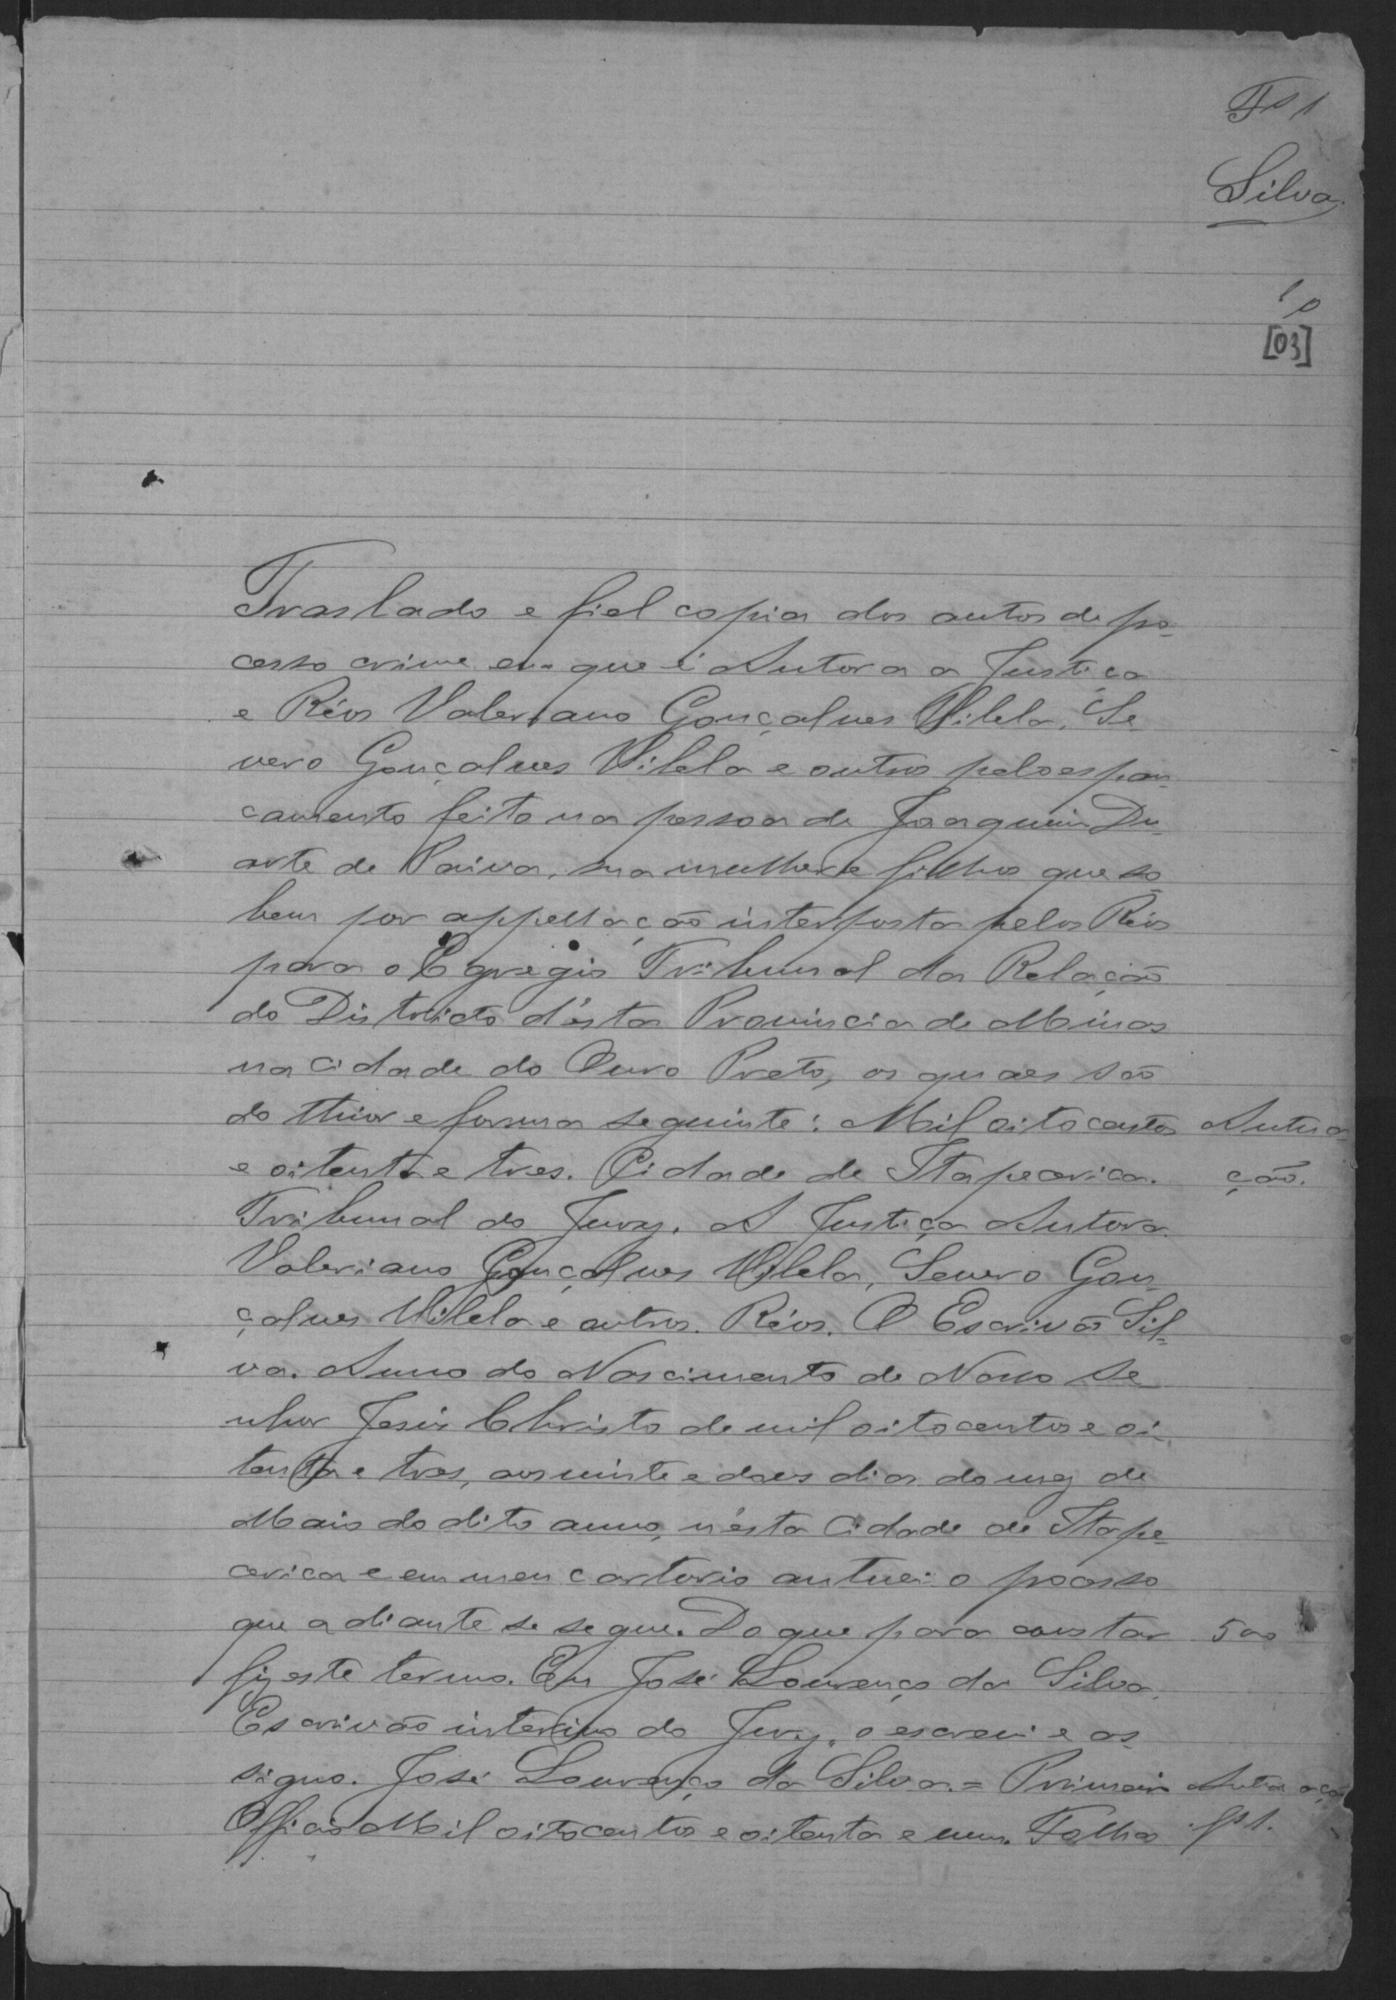 Fs 1
Silva.
[03]
Traslado e fiel copia dos autos de pro-
cesso crime em que é Autora a Justiça
e Réos Valeriano Gonçalves Vilela, Se-
vero Gonçalves Vilela e outros pelo espan-
camento feito na pessoa de Joaquim Du-
arte de Paiva, sua mulher e filhos que so-
bem por appellação interposta pelos Réos
para o Egregio Tribunal da Relação
do Districto d'ésta Provincia de Minas
na cidade do Ouro Preto, os quaes são
do thior e forma seguinte: Mil oitocentos Autua-
e oitenta e tres. Cidade de Itapecerica. ção.
Tribunal do Jury. A Justiça Autora.
Valeriano Gonçalves Vilela, Severo Gon-
çalves Vilela e outros. Réos. O Escrivão Sil-
va. Anno do Nascimento de Nosso Se-
nhor Jesús Christo de mil oitocentos e oi-
tenta e tres, aos vinte e doas dias do mez de
Maio do dito anno, n'ésta Cidade de Itape-
cerica e em meu cartorio autuei o pocesso
que adiante se segue. Do que para constar 500
fiz este termo. Eu José Lourenço da Silva,
Escrivão interino do Jury, o escrevi e as-
signo. José Lourenço da Silva. = Primeiro Autuação
Officio Mil oitocentos e oitenta e um. Folha fs 1.